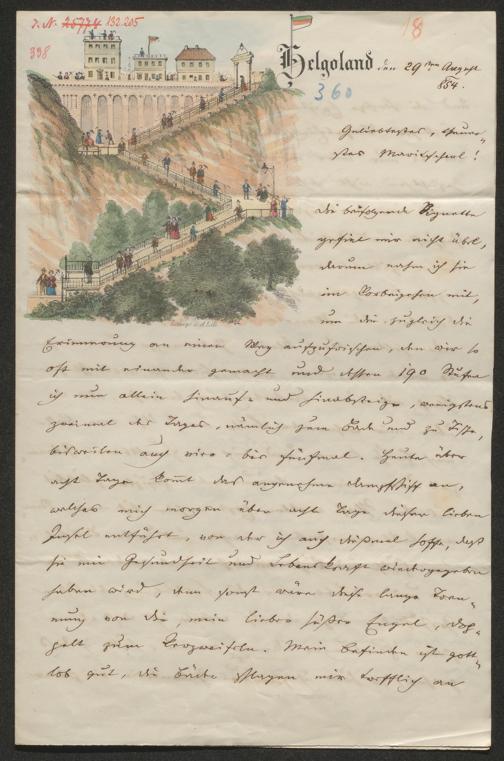 J. N. 25774 132.205
398
18
Helgoland den 29sten August
854.
360
Geliebtestes, theuer-
stes Marietscherl!
Die beifolgende Vignette
gefiel mir nicht übel,
darum nahm ich sie
im Vorbeigehen mit,
um dir zugleich die
Erinnerung an einen Weg aufzufrischen, den wir so
oft mit einander gemacht und dessen 190 Stufen
ich nun allein hinauf- und hinabsteige, wenigstens
zweimal des Tages, nämlich zum Bade und zu Tische,
bisweilen auch vier- bis fünfmal. Heute über
acht Tage kommt das angenehme Dampfschiff an,
welches mich morgen über acht Tage dieser lieben
Insel entführt, von der ich auch dießmal hoffe, daß
sie mir Gesundheit und Lebenskraft wiedergegeben
haben wird, denn sonst wäre diese lange Tren-
nung von dir, mein lieber süßer Engel, dop-
pelt zum Verzweifeln. Mein Befinden ist gott-
lob gut, die Bäder schlagen mir trefflich an